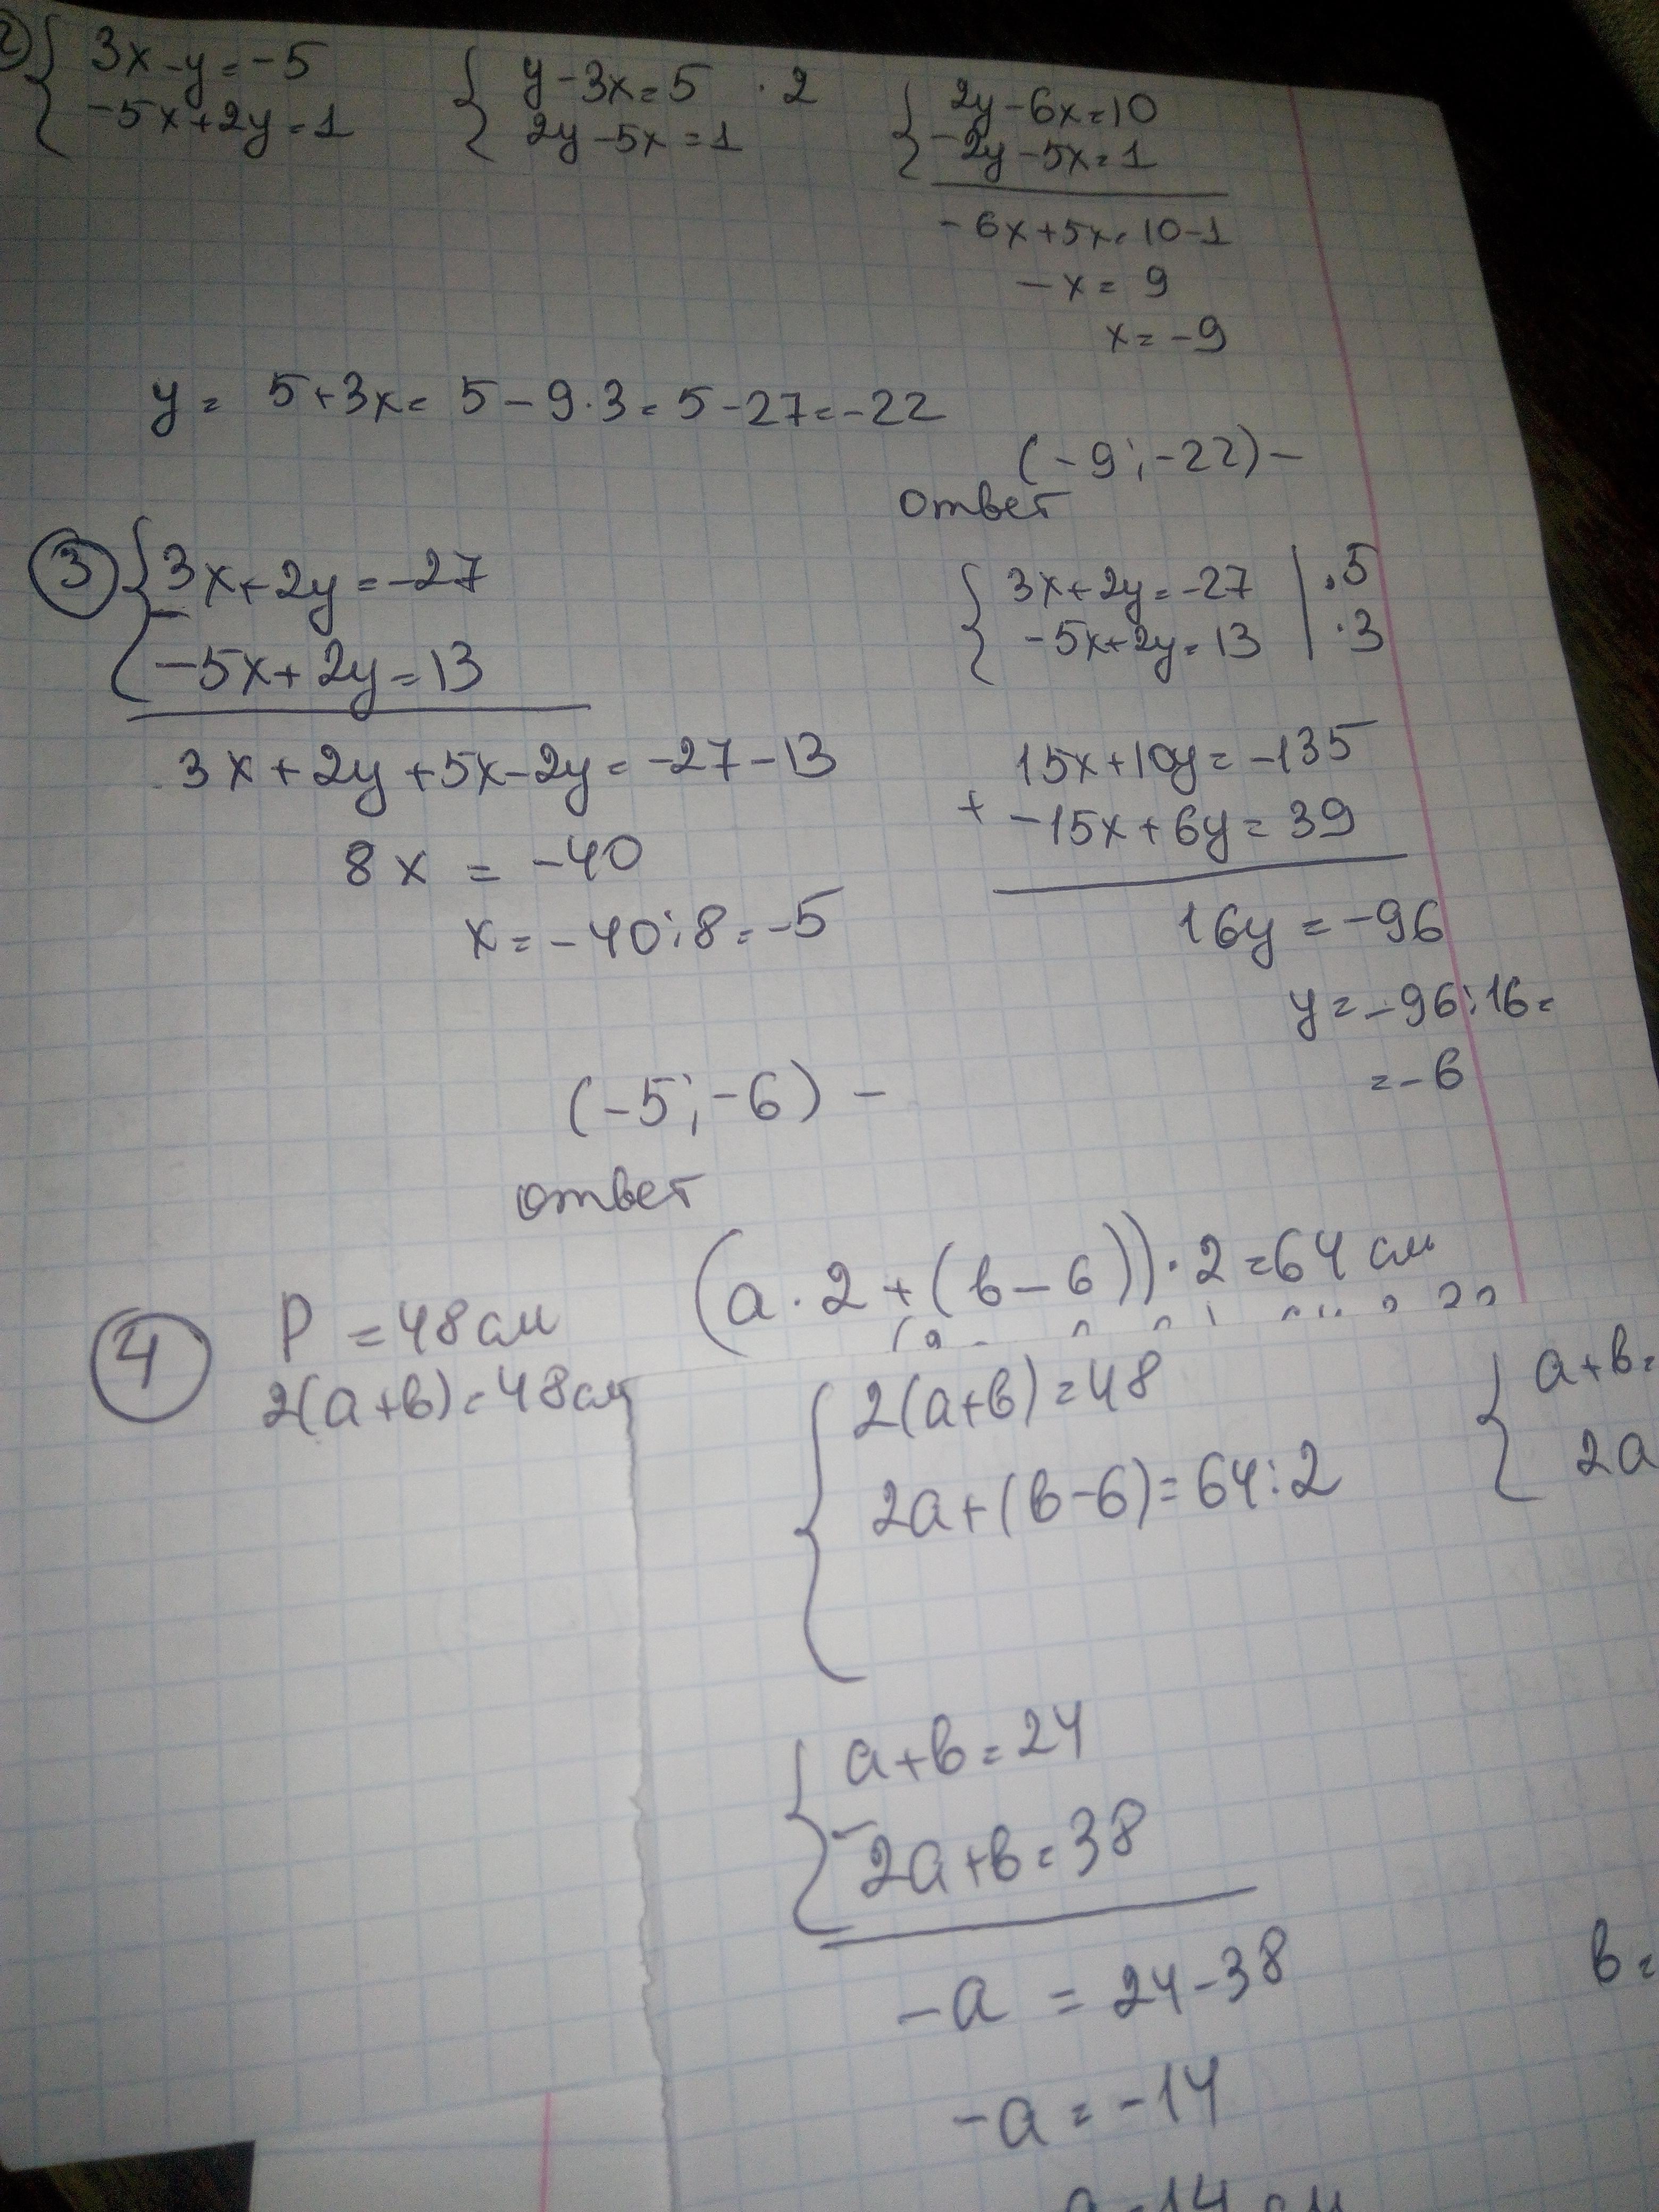 2) 3x-y=-5
-5x+2y=1
y-3x=5 ·2
2y-5x=1
2y-6x=10
- 2y-5x=1
-6x+5x=10-1
-x=9
x=-9
y=5+3x=5-9·3=5-27=-22
(-9;-22)-
ответ
3 3x+2y=-27
- -5x+2y=13
3x+2y+5x-2y=-27-13
8x=-40
x=-40:8=-5
3x+2y=-27 | ·5
-5x+2y=13 | ·3
15x+10y=-135
+ -15x+6y=39
16y=-96
y=-96:16=
=-6
(-5;-6)-
ответ
4 P=48см
2(a+в)=48см
(a·2+(в-6))·2=64см
2(a+в)=48
2a+(в-6)=64:2
a+в=
2a
a+в=24
- 2a+в=38
-a=24-38
-a=-14
a=14см
в=